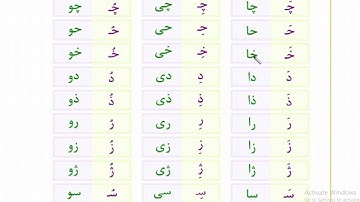 چَـ چا چِـ چی چُـ چو
حَـ حا حِـ حی حُـ حو
خَـ خا خِـ خی خُـ خو
دَ دا دِ دی دُ دو
ذَ ذا ذِ ذی ذُ ذو
رَ را رِ ری رُ رو
زَ زا زِ زی زُ زو
ژَ ژا ژِ ژی ژُ ژو
سَـ سا سِـ سی سُـ سو
Activate Windows